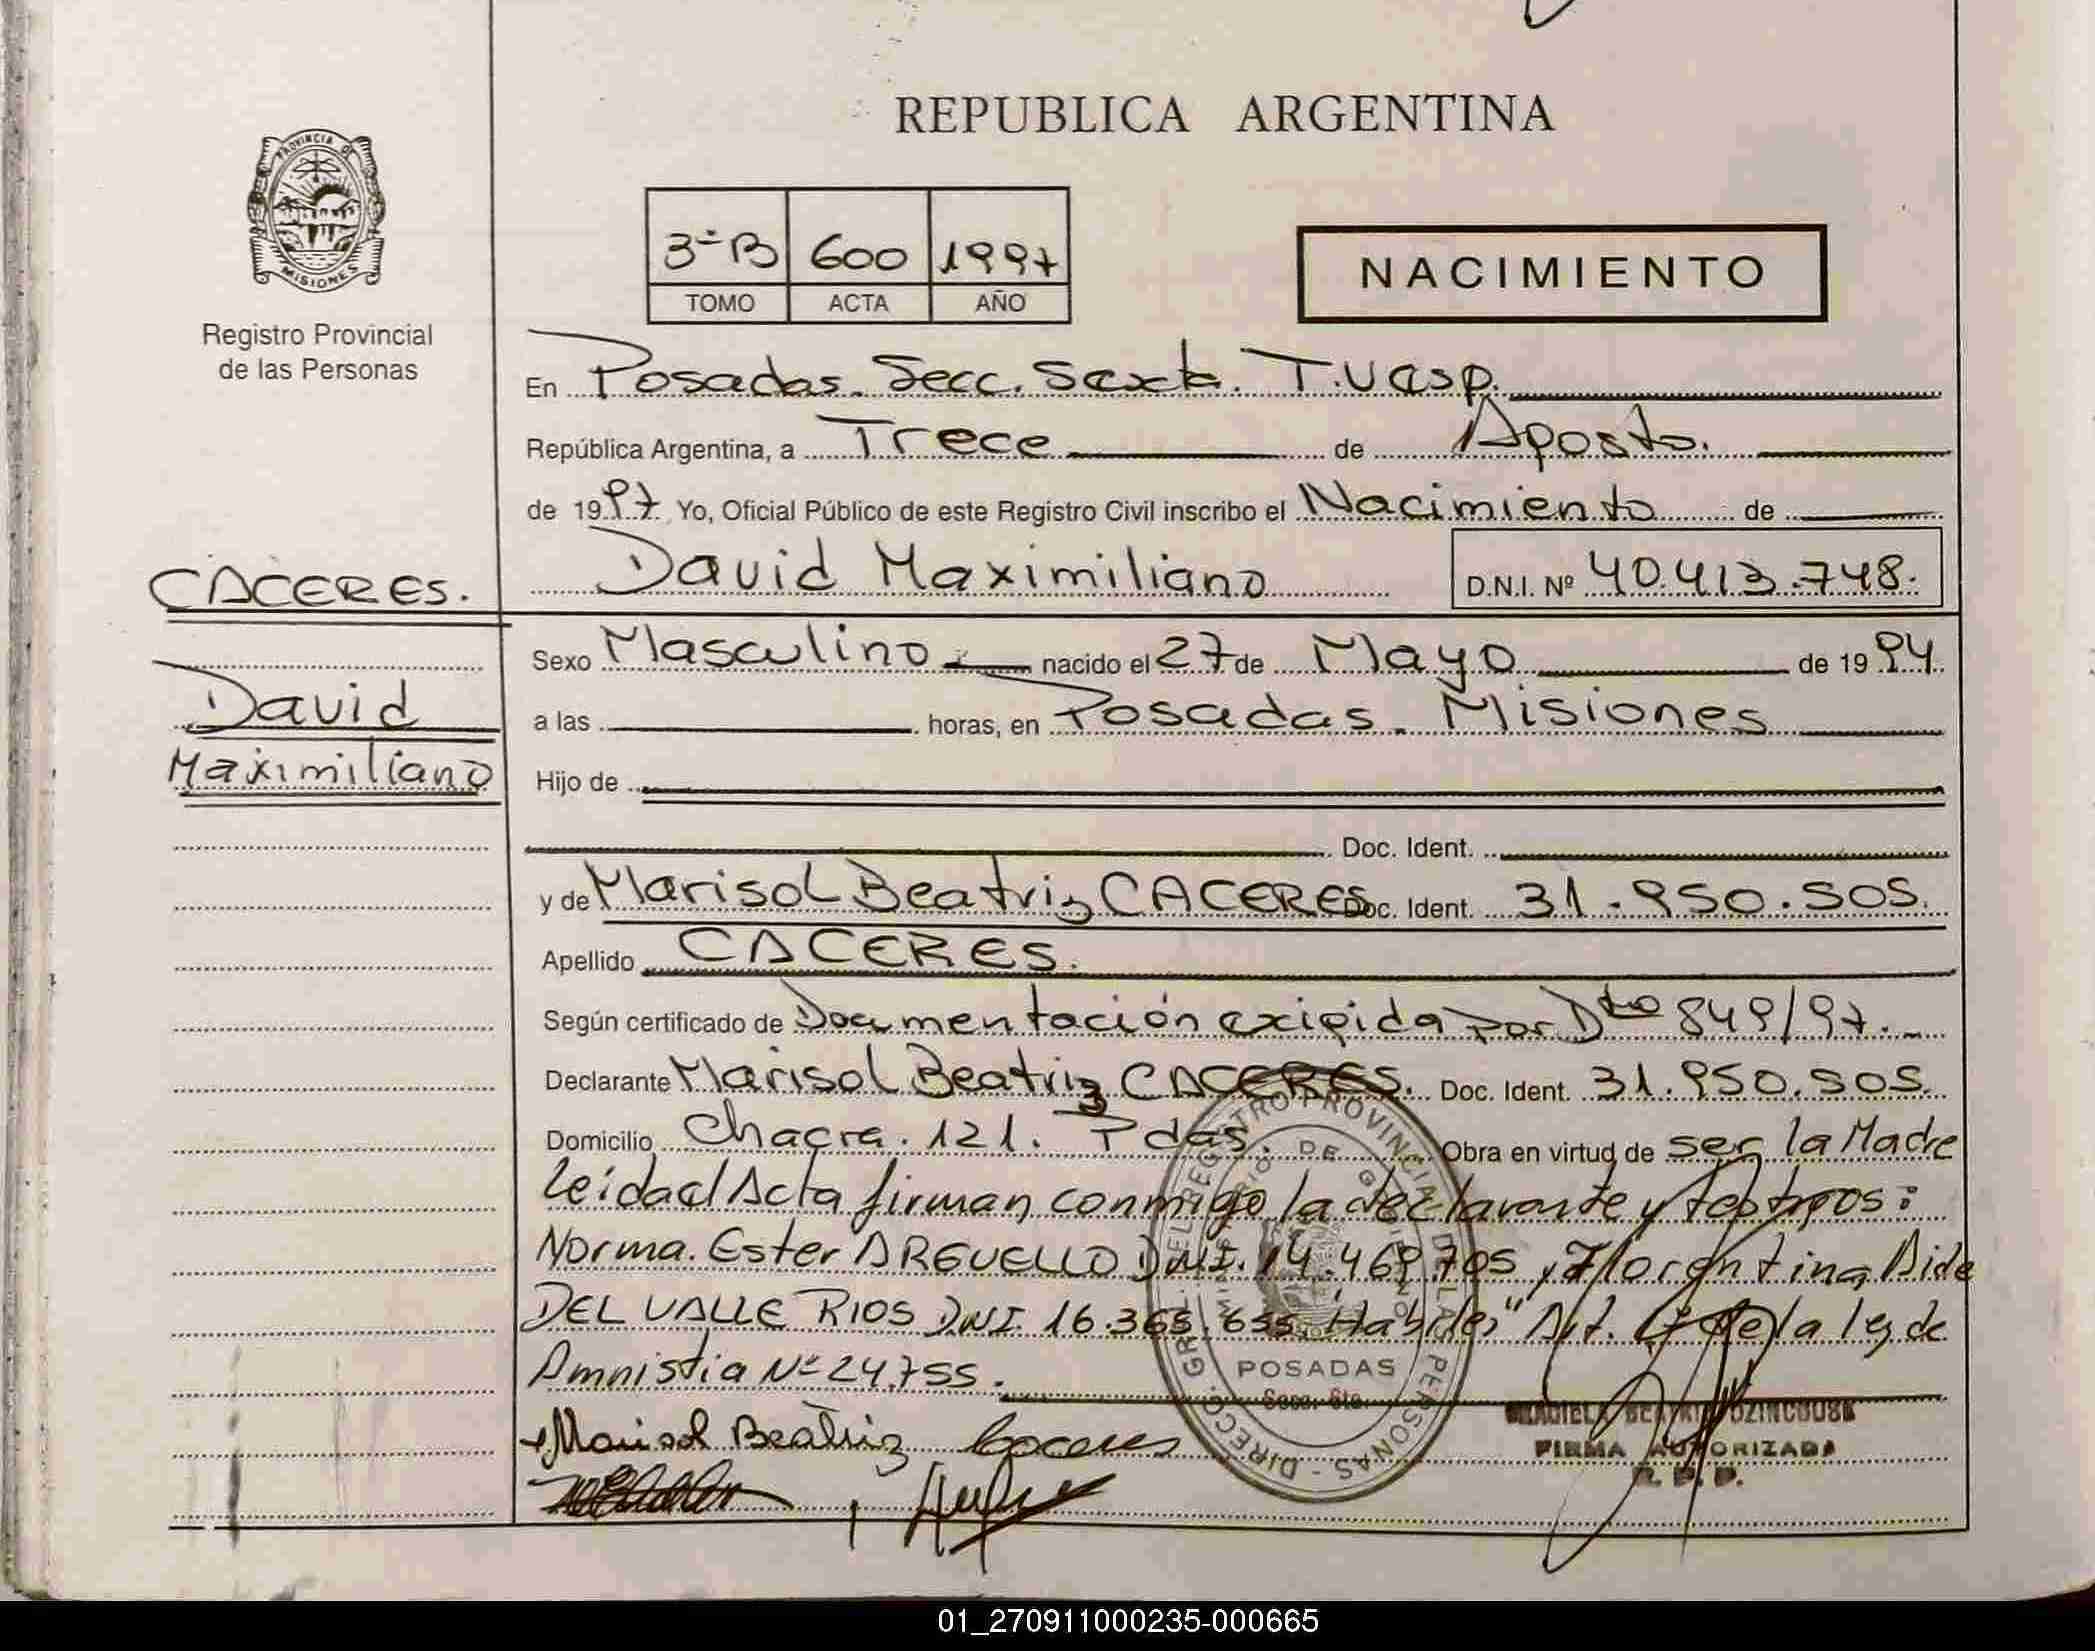 REPUBLICA ARGENTINA
PROVINCIA DE
MISIONES
Registro Provincial
de las Personas
3ª B 600 1997
TOMO ACTA AÑO
NACIMIENTO
En Posadas. Secc. Sexta. T.Vesp.
República Argentina, a Trece de Agosto.
de 1997 Yo, Oficial Público de este Registro Civil inscribo el Nacimiento de
David Maximiliano D.N.I. Nº 40.413.748.
CACERES.
David
Maximiliano
Sexo Masculino nacido el 27 de Mayo de 1994
a las horas, en Posadas. Misiones
Hijo de
Doc. Ident.
y de Marisol Beatriz CACERES Doc. Ident. 31.950.505.
Apellido CACERES.
Según certificado de Documentación exigida por Dto 849/97.
Declarante Marisol Beatriz CACERES. Doc. Ident. 31.950.505.
Domicilio Chacra. 121. Pdas. Obra en virtud de ser la Madre
Leida el Acta firman conmigo la declarante y testigos:
Norma. Ester ARGUELLO DNI. 14.469.705 y Florentina Aide
DEL VALLE RIOS DNI 16.365.655 Habiles" Art. de la ley de
Amnistia Nº 24.755.
POSADAS
Secc. 6ta.
Marisol Beatriz Caceres
FIRMA AUTORIZADA
R. P. P.
01_270911000235-000665